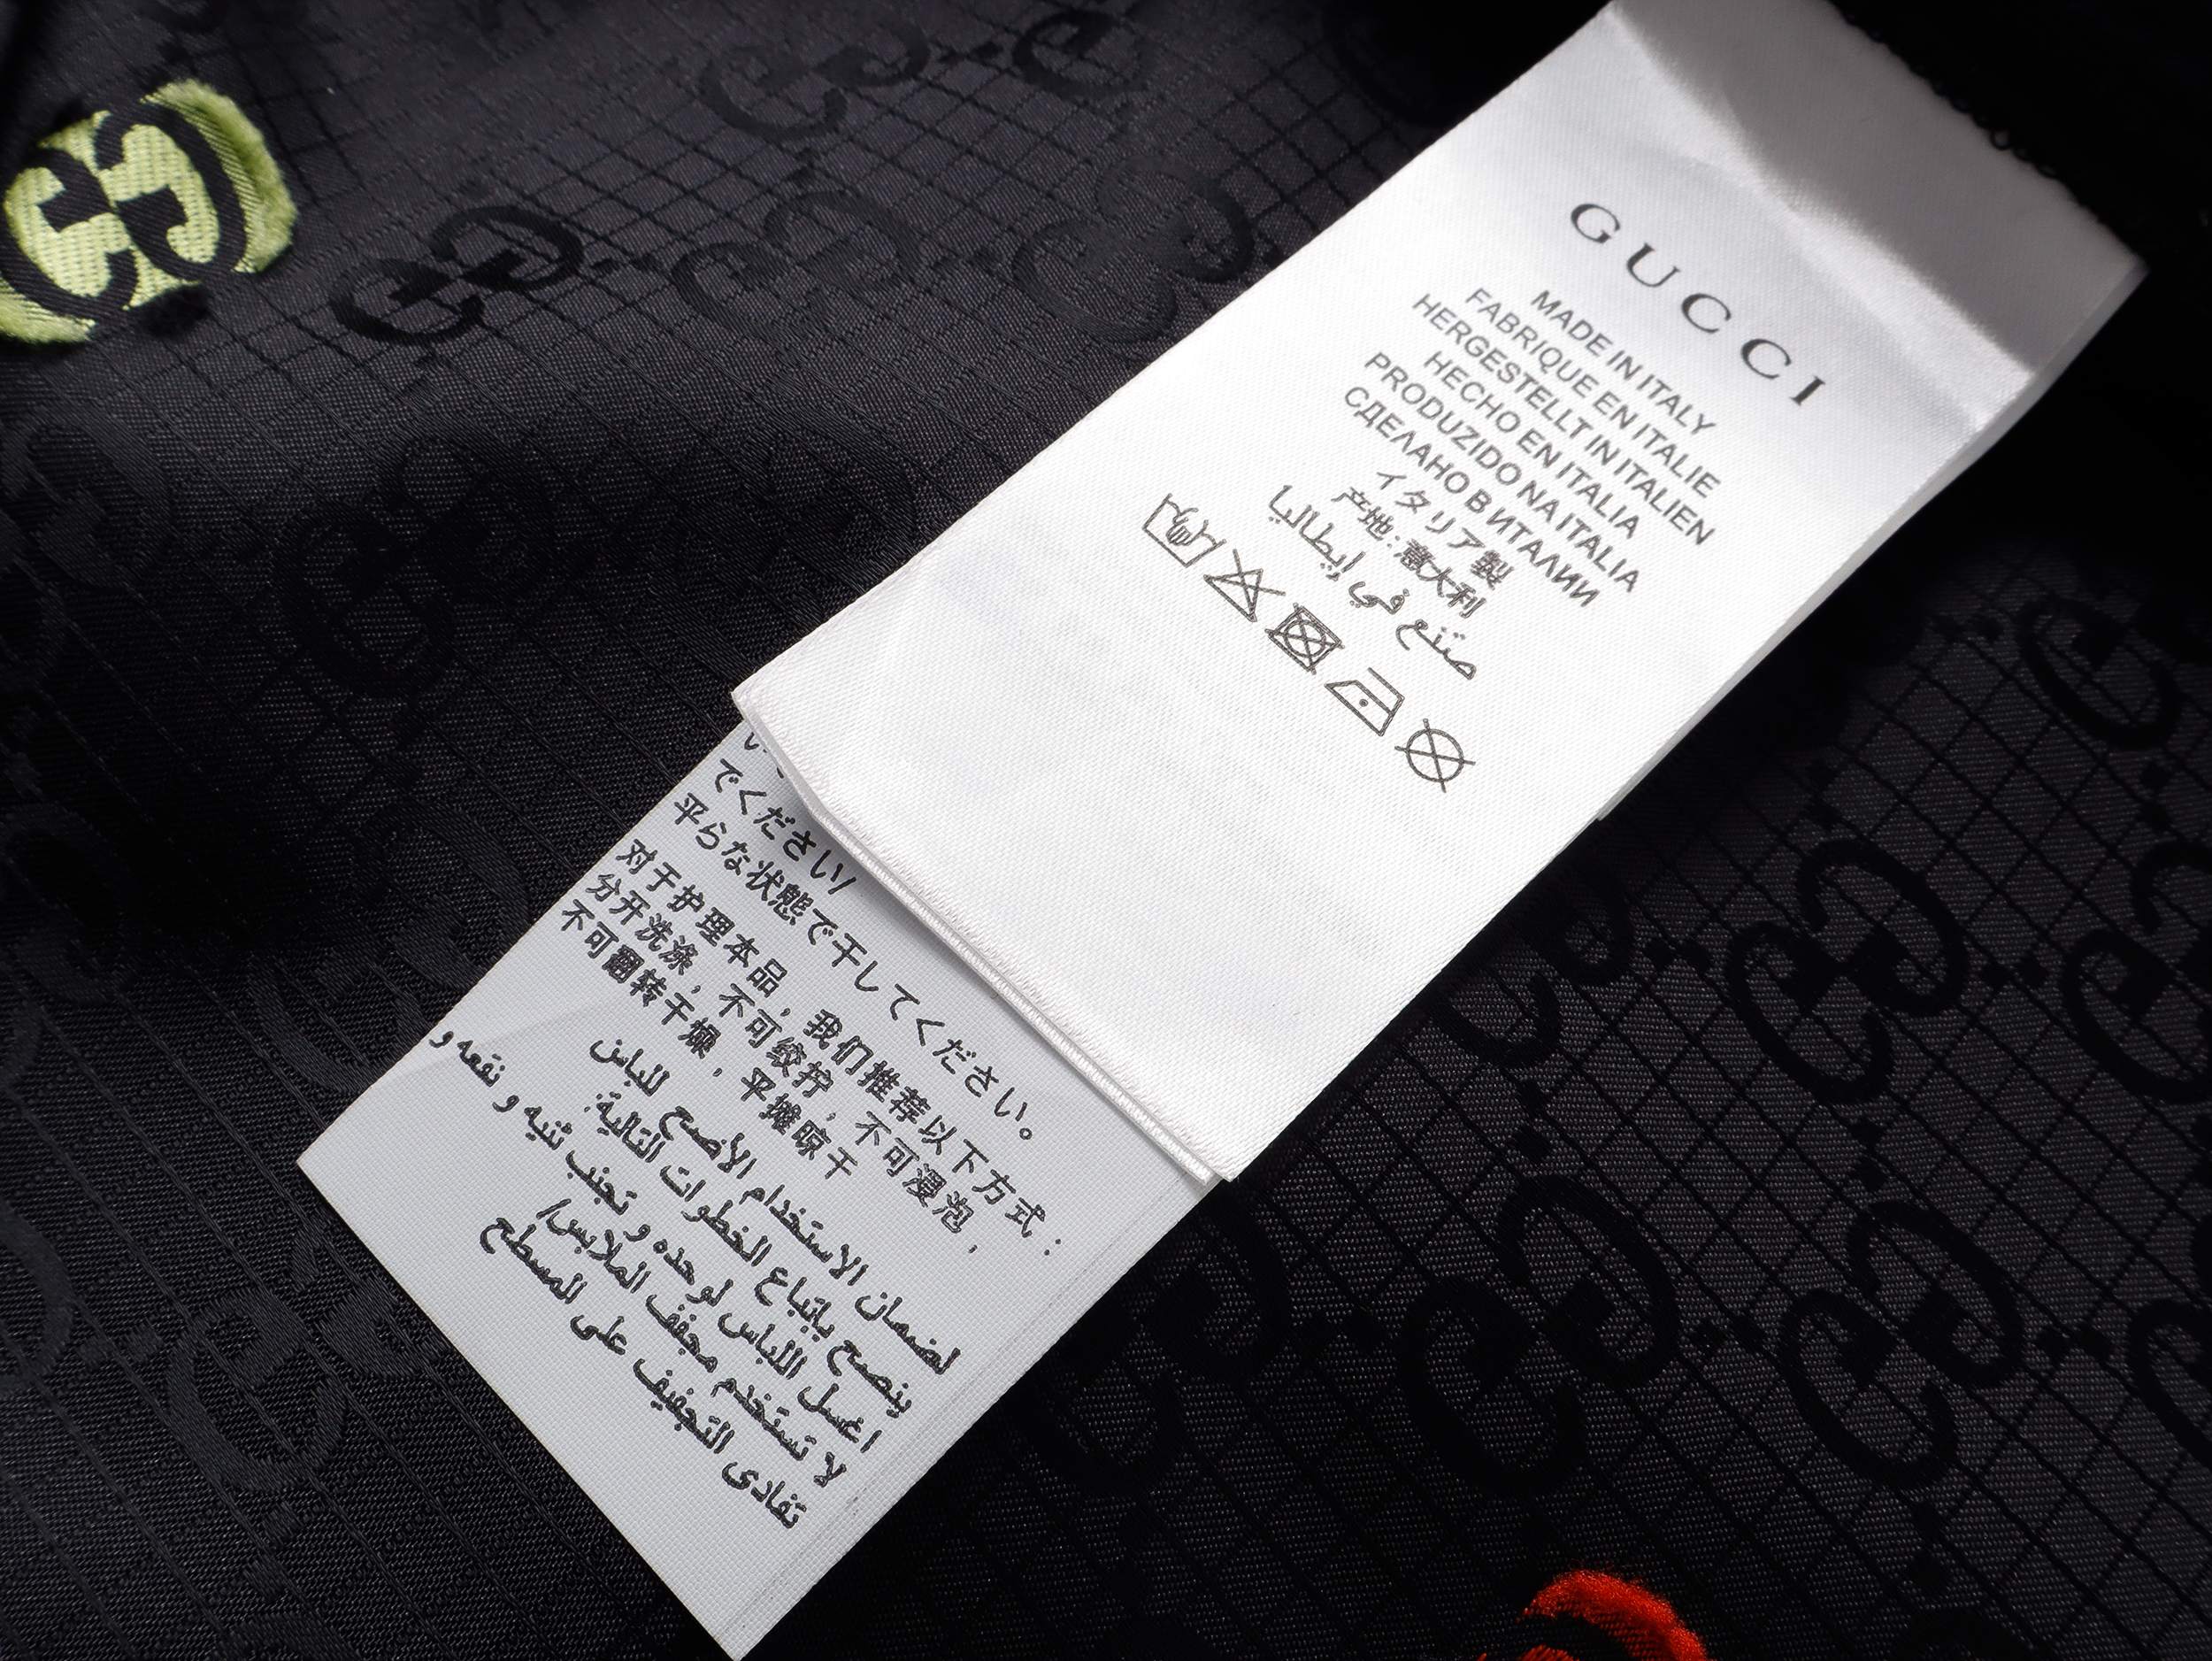 GUCCI
MADE IN ITALY
FABRIQUE EN ITALIE
HERGESTELLT IN ITALIEN
HECHO EN ITALIA
PRODUZIDO NA ITALIA
СДЕЛАНО В ИТАЛИИ
イタリア製
产地:意大利
صتنع في إيطاليا
でください/
平らな状態で干してください。
对于护理本品,我们推荐以下方式:
分开洗涤,不可绞拧,不可浸泡,
不可翻转干燥,平摊晾干
لضمان الاستخدام الأضح للباس
ينصح باتباع الخطوات التالية:
اغسل اللباس لوحده و تجنب ثنيه و نقعه و
لا تستخدم مجفف الملابس/
تفادى التجفيف على المسطح